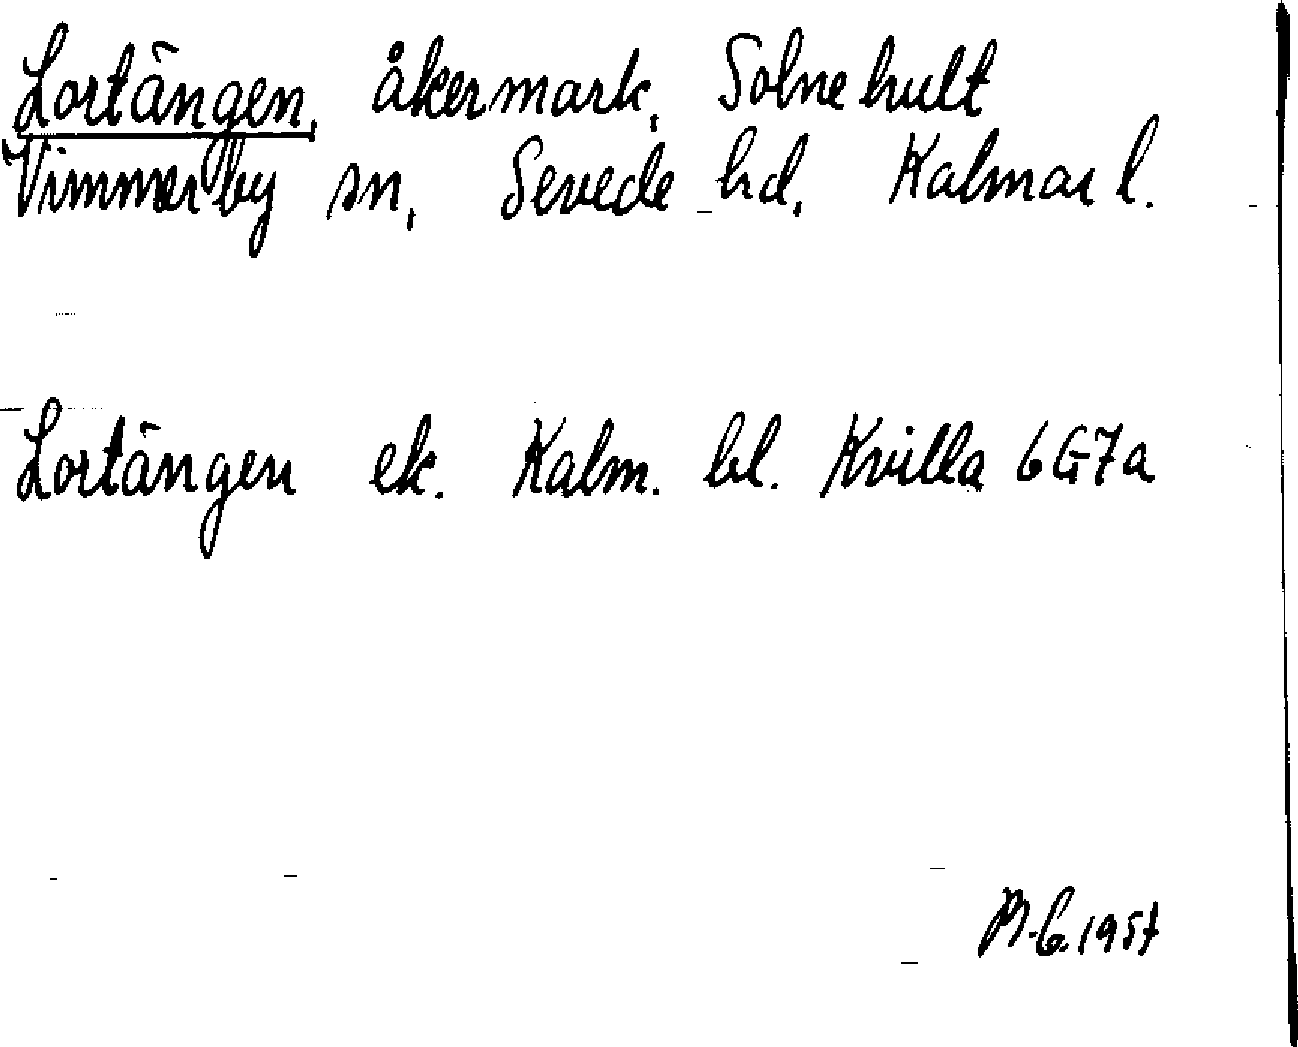 Lortängen, åkermark, Solnehult
Vimmerby sn, Sevede hd, Kalmar l.
Lortängen ek. Kalm. bl. Kvilla 6G7a
1957